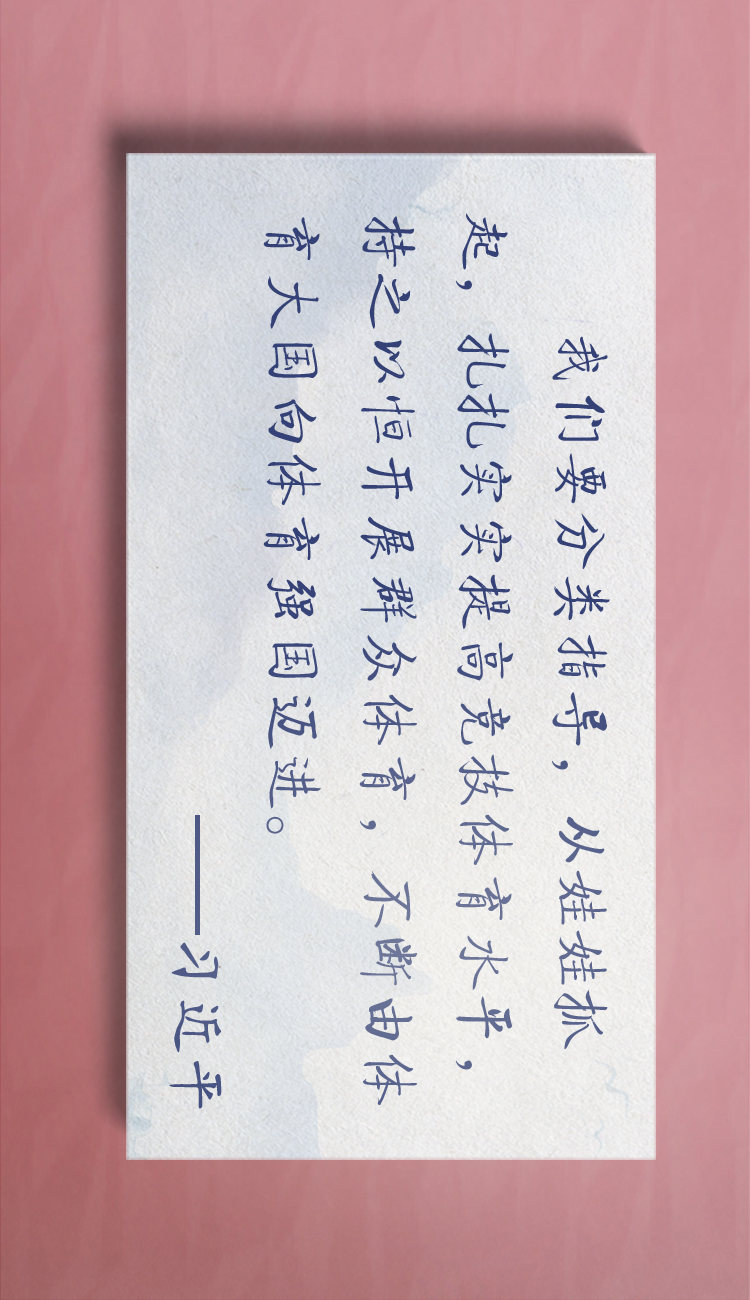 我们要分类指导，从娃娃抓
起，扎扎实实提高竞技体育水平，
持之以恒开展群众体育，不断由体
育大国向体育强国迈进。
——习近平